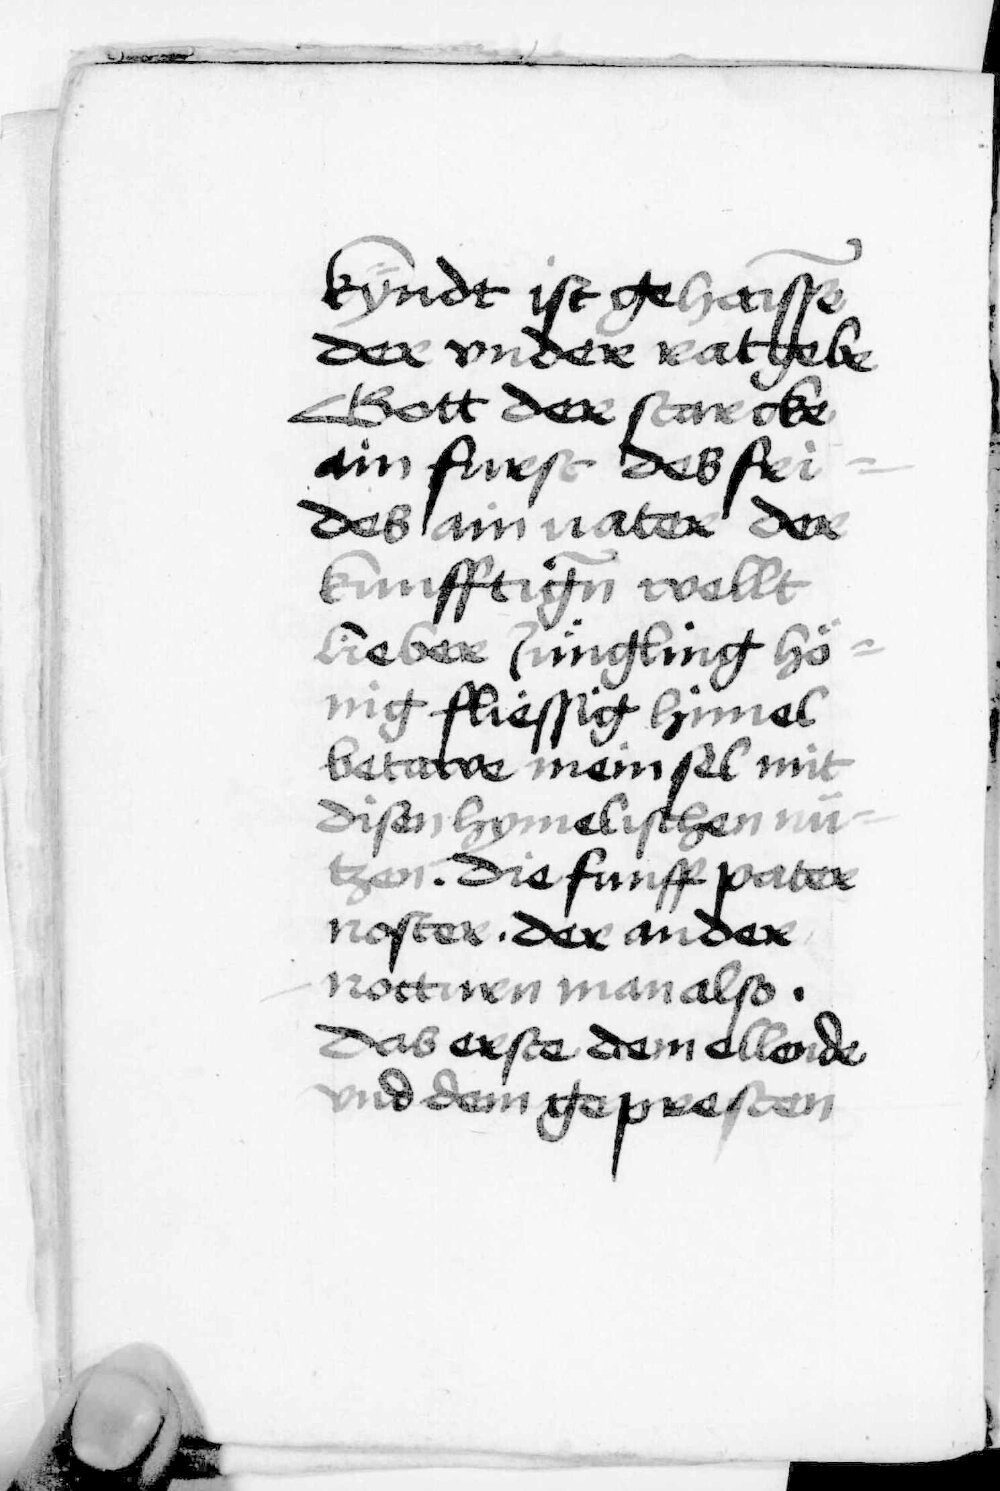 kÿndt ist gehaissē
der vnder ratgebe
Gott der starcke
ain furst des fri=
des ain uater der
kunfftigñ wellt
Lieber Jüngling hö=
nig fliessig himel
betawe mein sel mit
disen hymelischen nü=
tzen. die funff pater
noster. der ander
notturen man also.
Das erste dem ellende
vnd dem gepresten